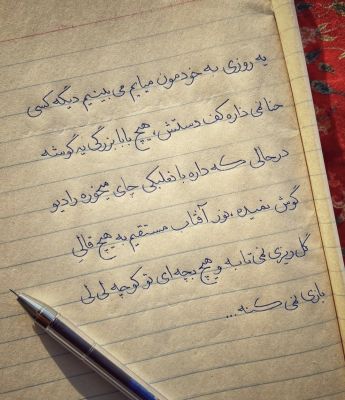 یه روزی به خودمون میایم می بینیم دیگه کسی
حنا نمی ذاره کف دستش، هیچ بابا بزرگی یه گوشه
در حالی که داره با نعلبکی چای میخوره رادیو
گوش نمیده، نور آفتاب مستقیم به هیچ قالی
گل ریزی نمی تابه و هیچ بچه ای تو کوچه لی لی
بازی نمی کنه...